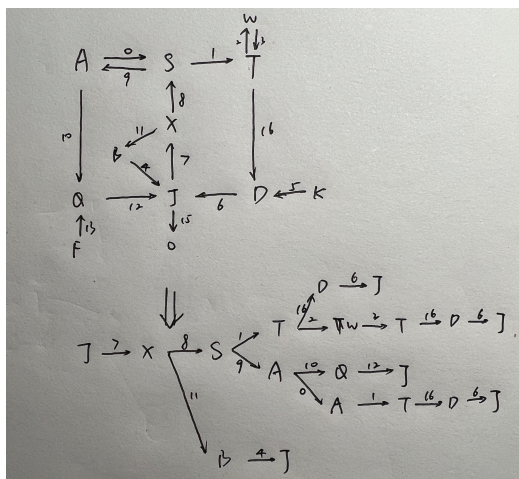 W
2 3
A 0 S 1 T
9
8
10 11 X 16
B
4 7
Q 12 J 6 D 5 K
13 15
F O
D 6 J
16
T 2 W 2 T 16 D 6 J
1
J 7 X 8 S
9
A 10 Q 12 J
0
11 A 1 T 16 D 6 J
B 4 J